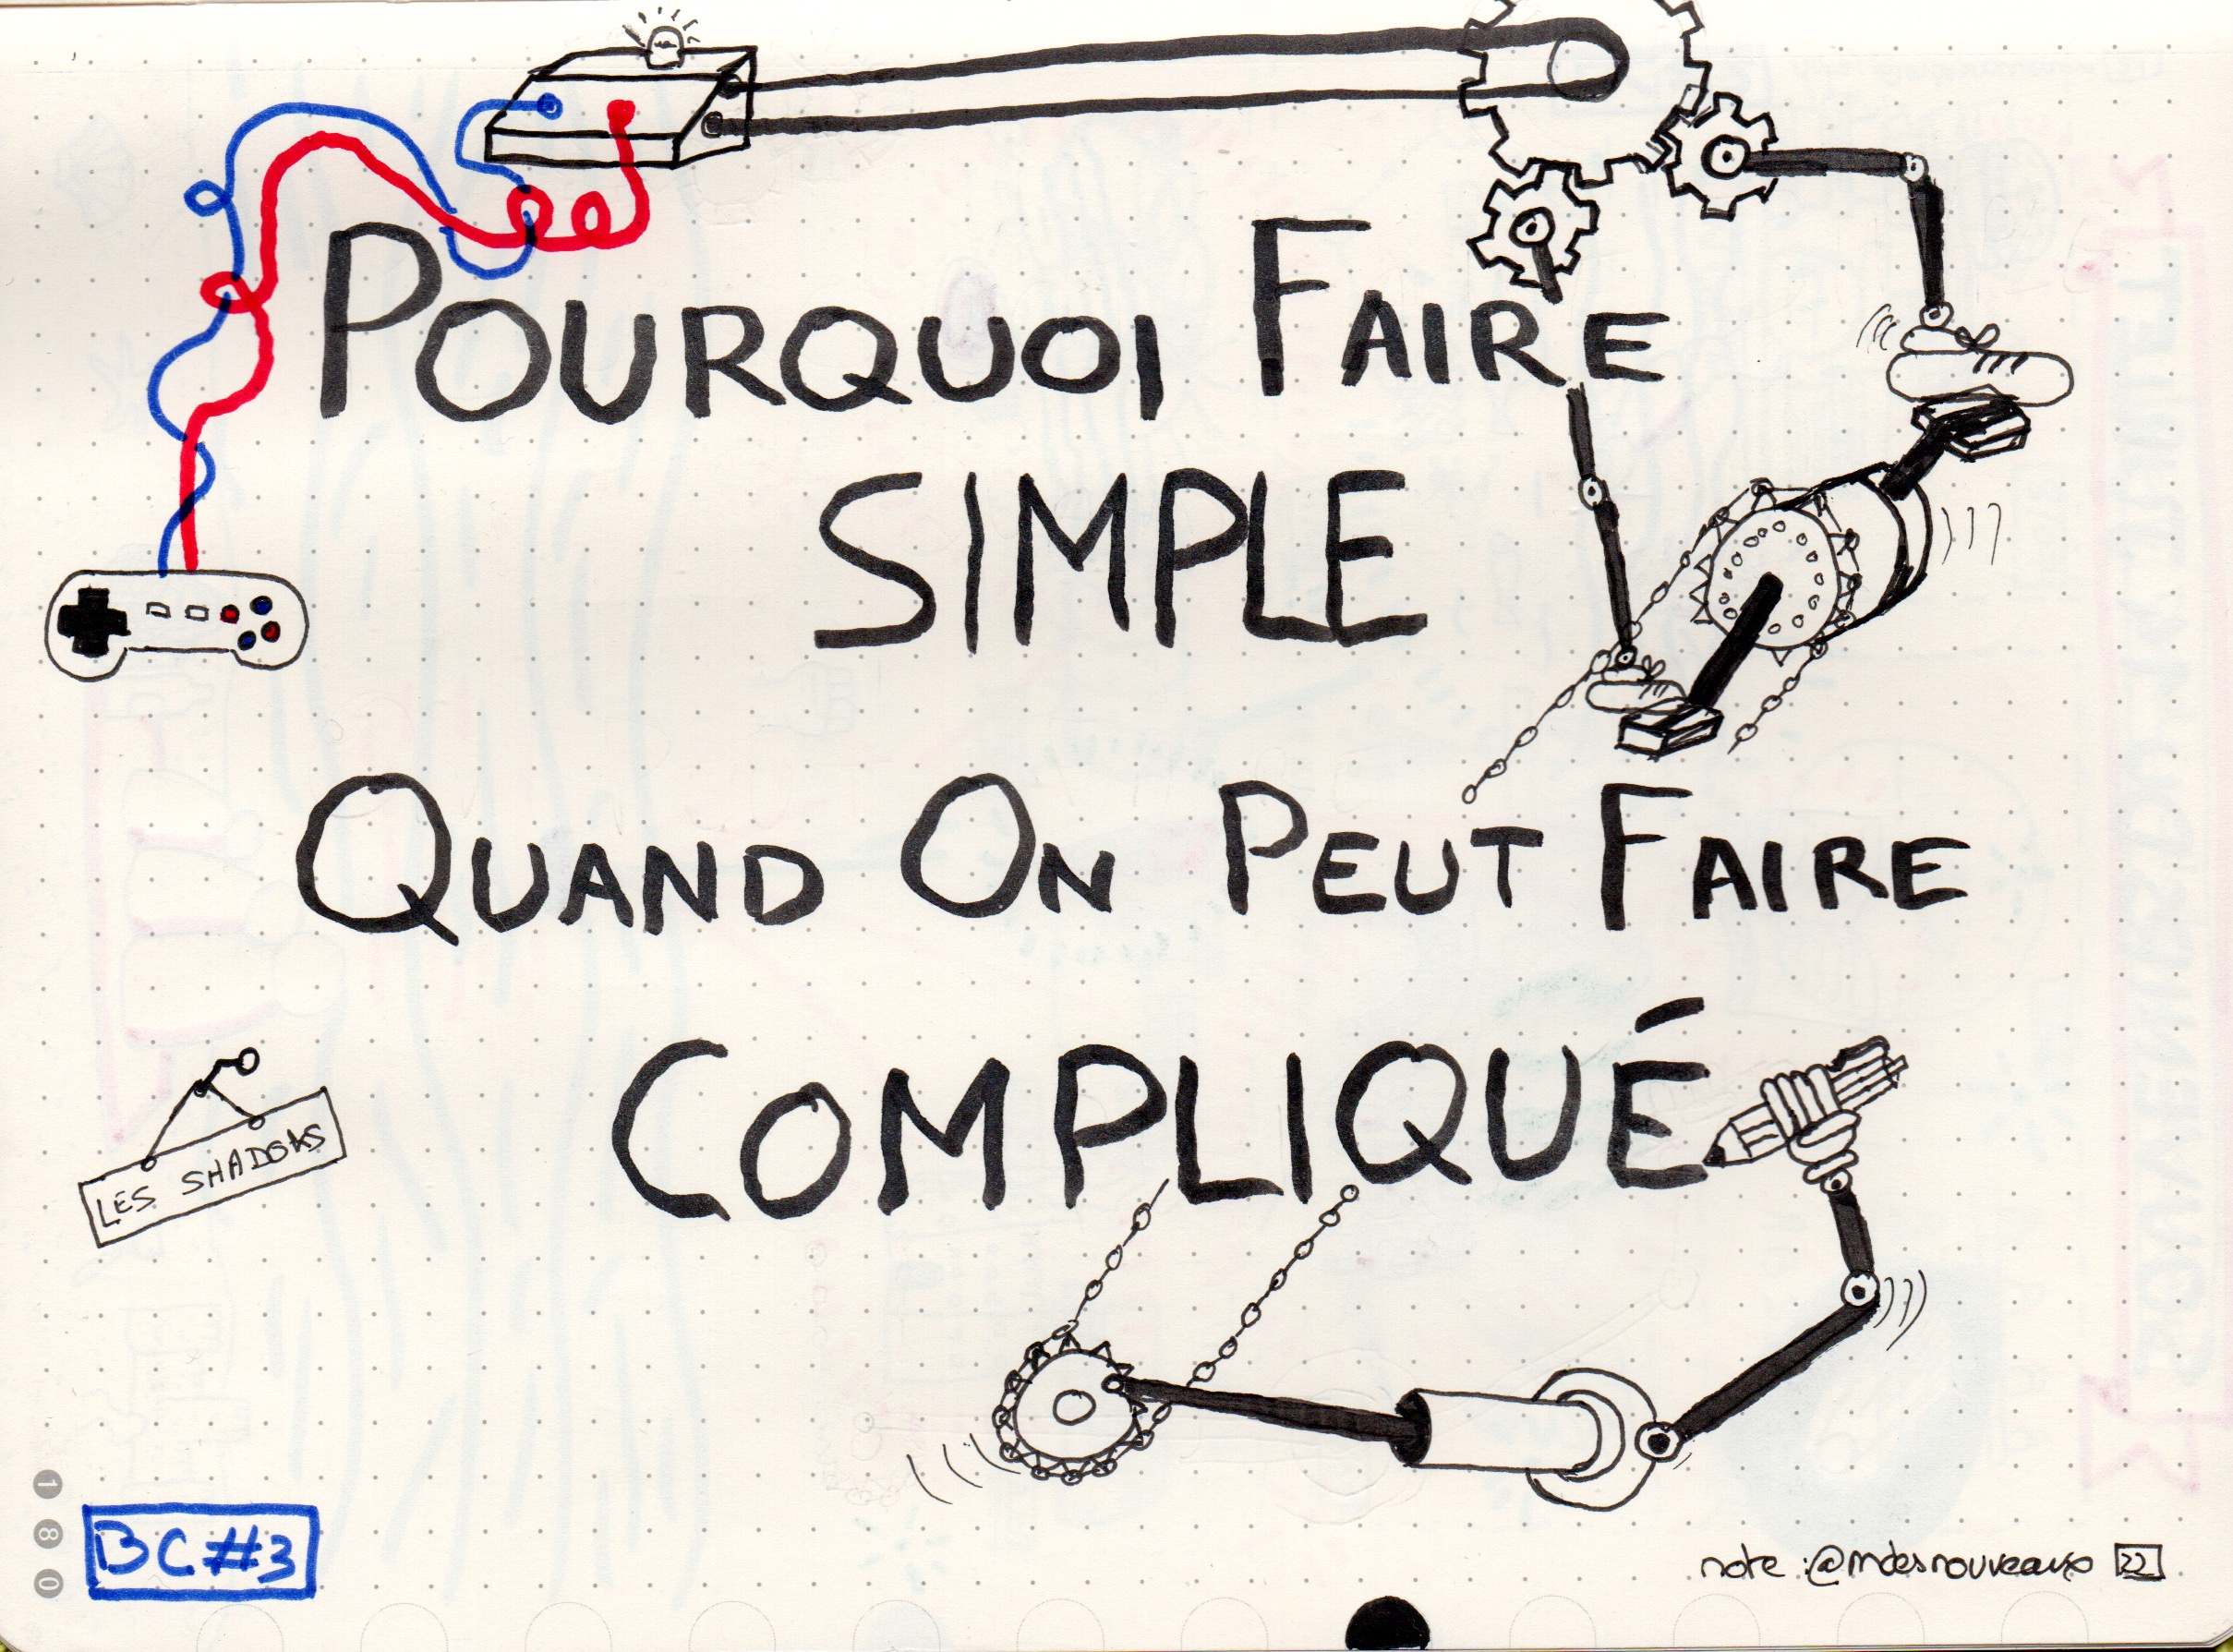 POURQUOI FAIRE
SIMPLE
QUAND ON PEUT FAIRE
COMPLIQUÉ
LES SHADOKS
BC#3
note : @mdesnouveaux 22
180